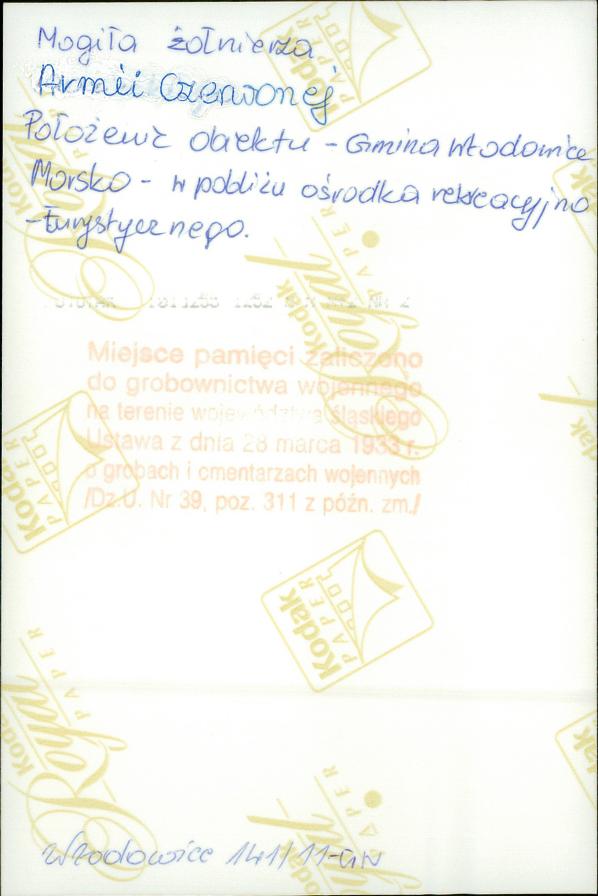 Mogiła żołnierza
Armii Czerwonej
Położenie obiektu - Gmina Włodowice
Morsko - w pobliżu ośrodka rekreacyjno
-turystycznego.
Miejsce pamięci zaliczono
do grobownictwa wojennego
na terenie województwa śląskiego
Ustawa z dnia 28 marca 1933 r.
o grobach i cmentarzach wojennych
/Dz.U. Nr 39, poz. 311 z późn. zm./
Kodak
PAPER
Royal
Kodak
PAPER
Włodowice 141/11-GN